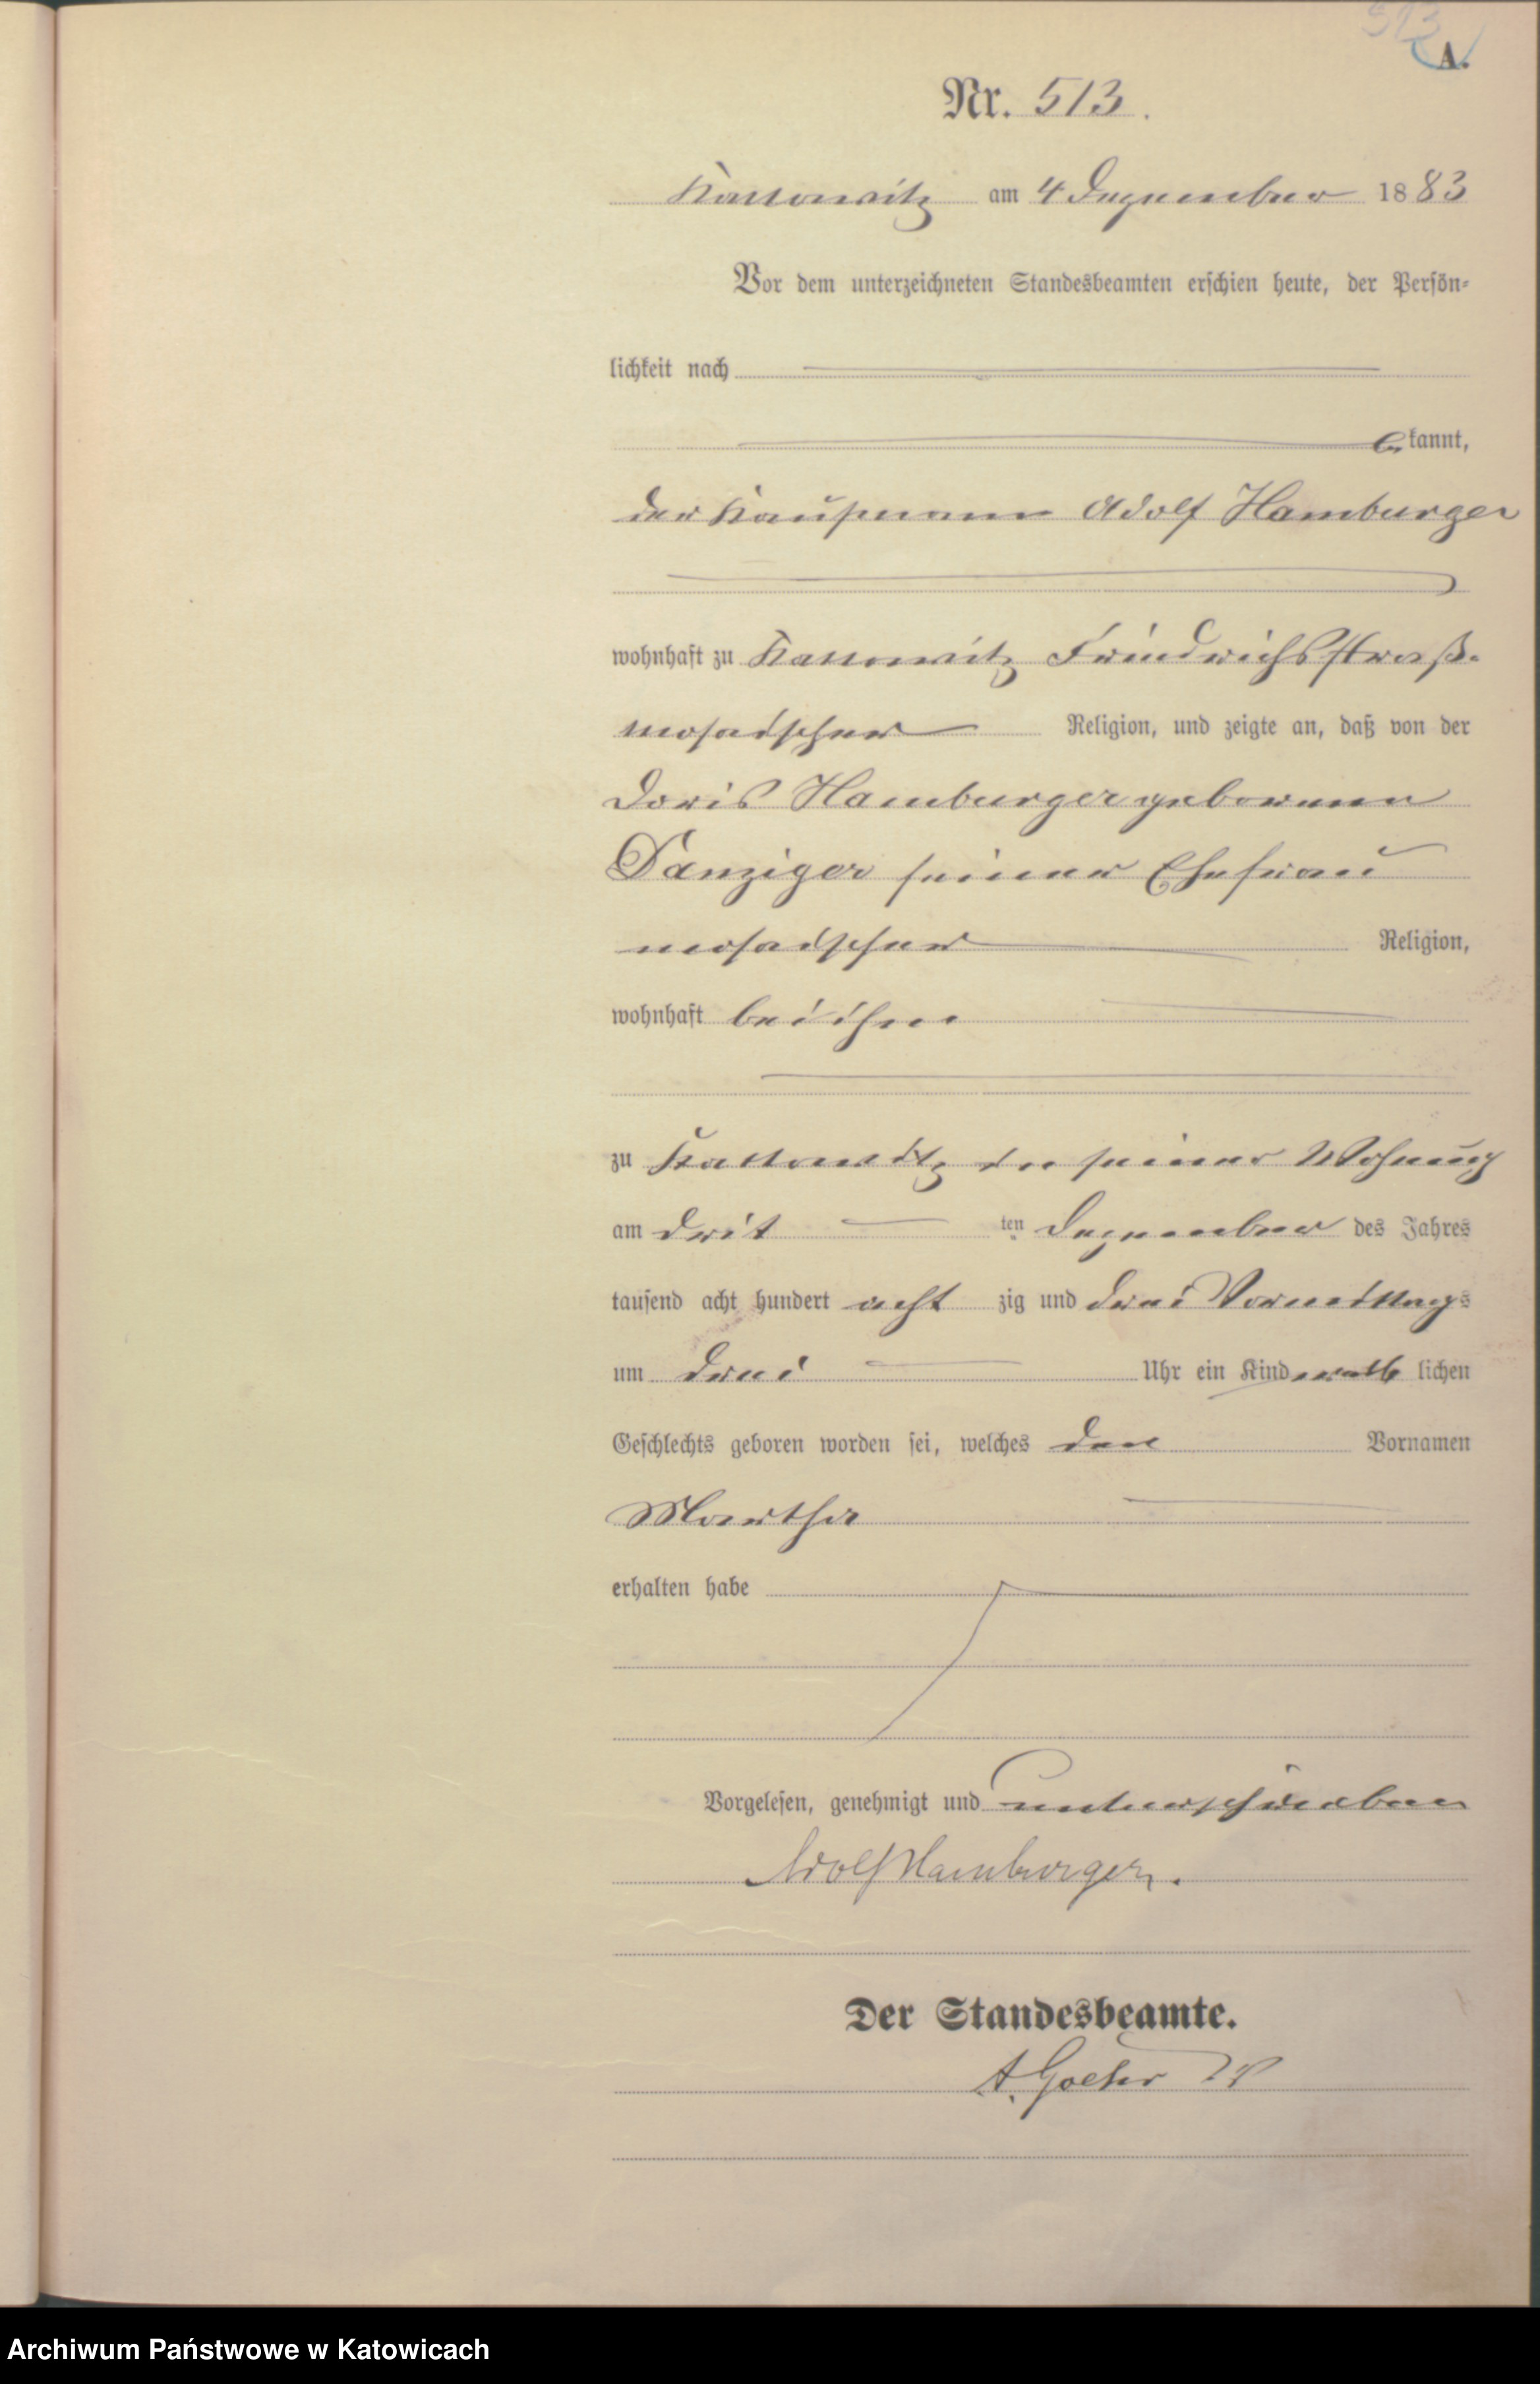 513
A.
Nr. 513.
Kattowitz am 4 Dezember 1883
Vor dem unterzeichneten Standesbeamten erschien heute, der Persön-
lichkeit nach
bekannt,
der Kaufmann Adolf Hamburger
wohnhaft zu Kattowitz Friedrichsstraß.
mosaischer Religion, und zeigte an, daß von der
Doris Hamburger geborenen
Danziger seiner Ehefrau
mosaischer Religion,
wohnhaft bei ihm
zu Kattowitz in seiner Wohnung
am drit ten Dezember des Jahres
tausend acht hundert acht zig und drei Vormittags
um drei Uhr ein Kind weib lichen
Geschlechts geboren worden sei, welches den Vornamen
Martha
erhalten habe
Vorgelesen, genehmigt und unterschrieben
Adolf Hamburger.
Der Standesbeamte.
A.
Archiwum Państwowe w Katowicach